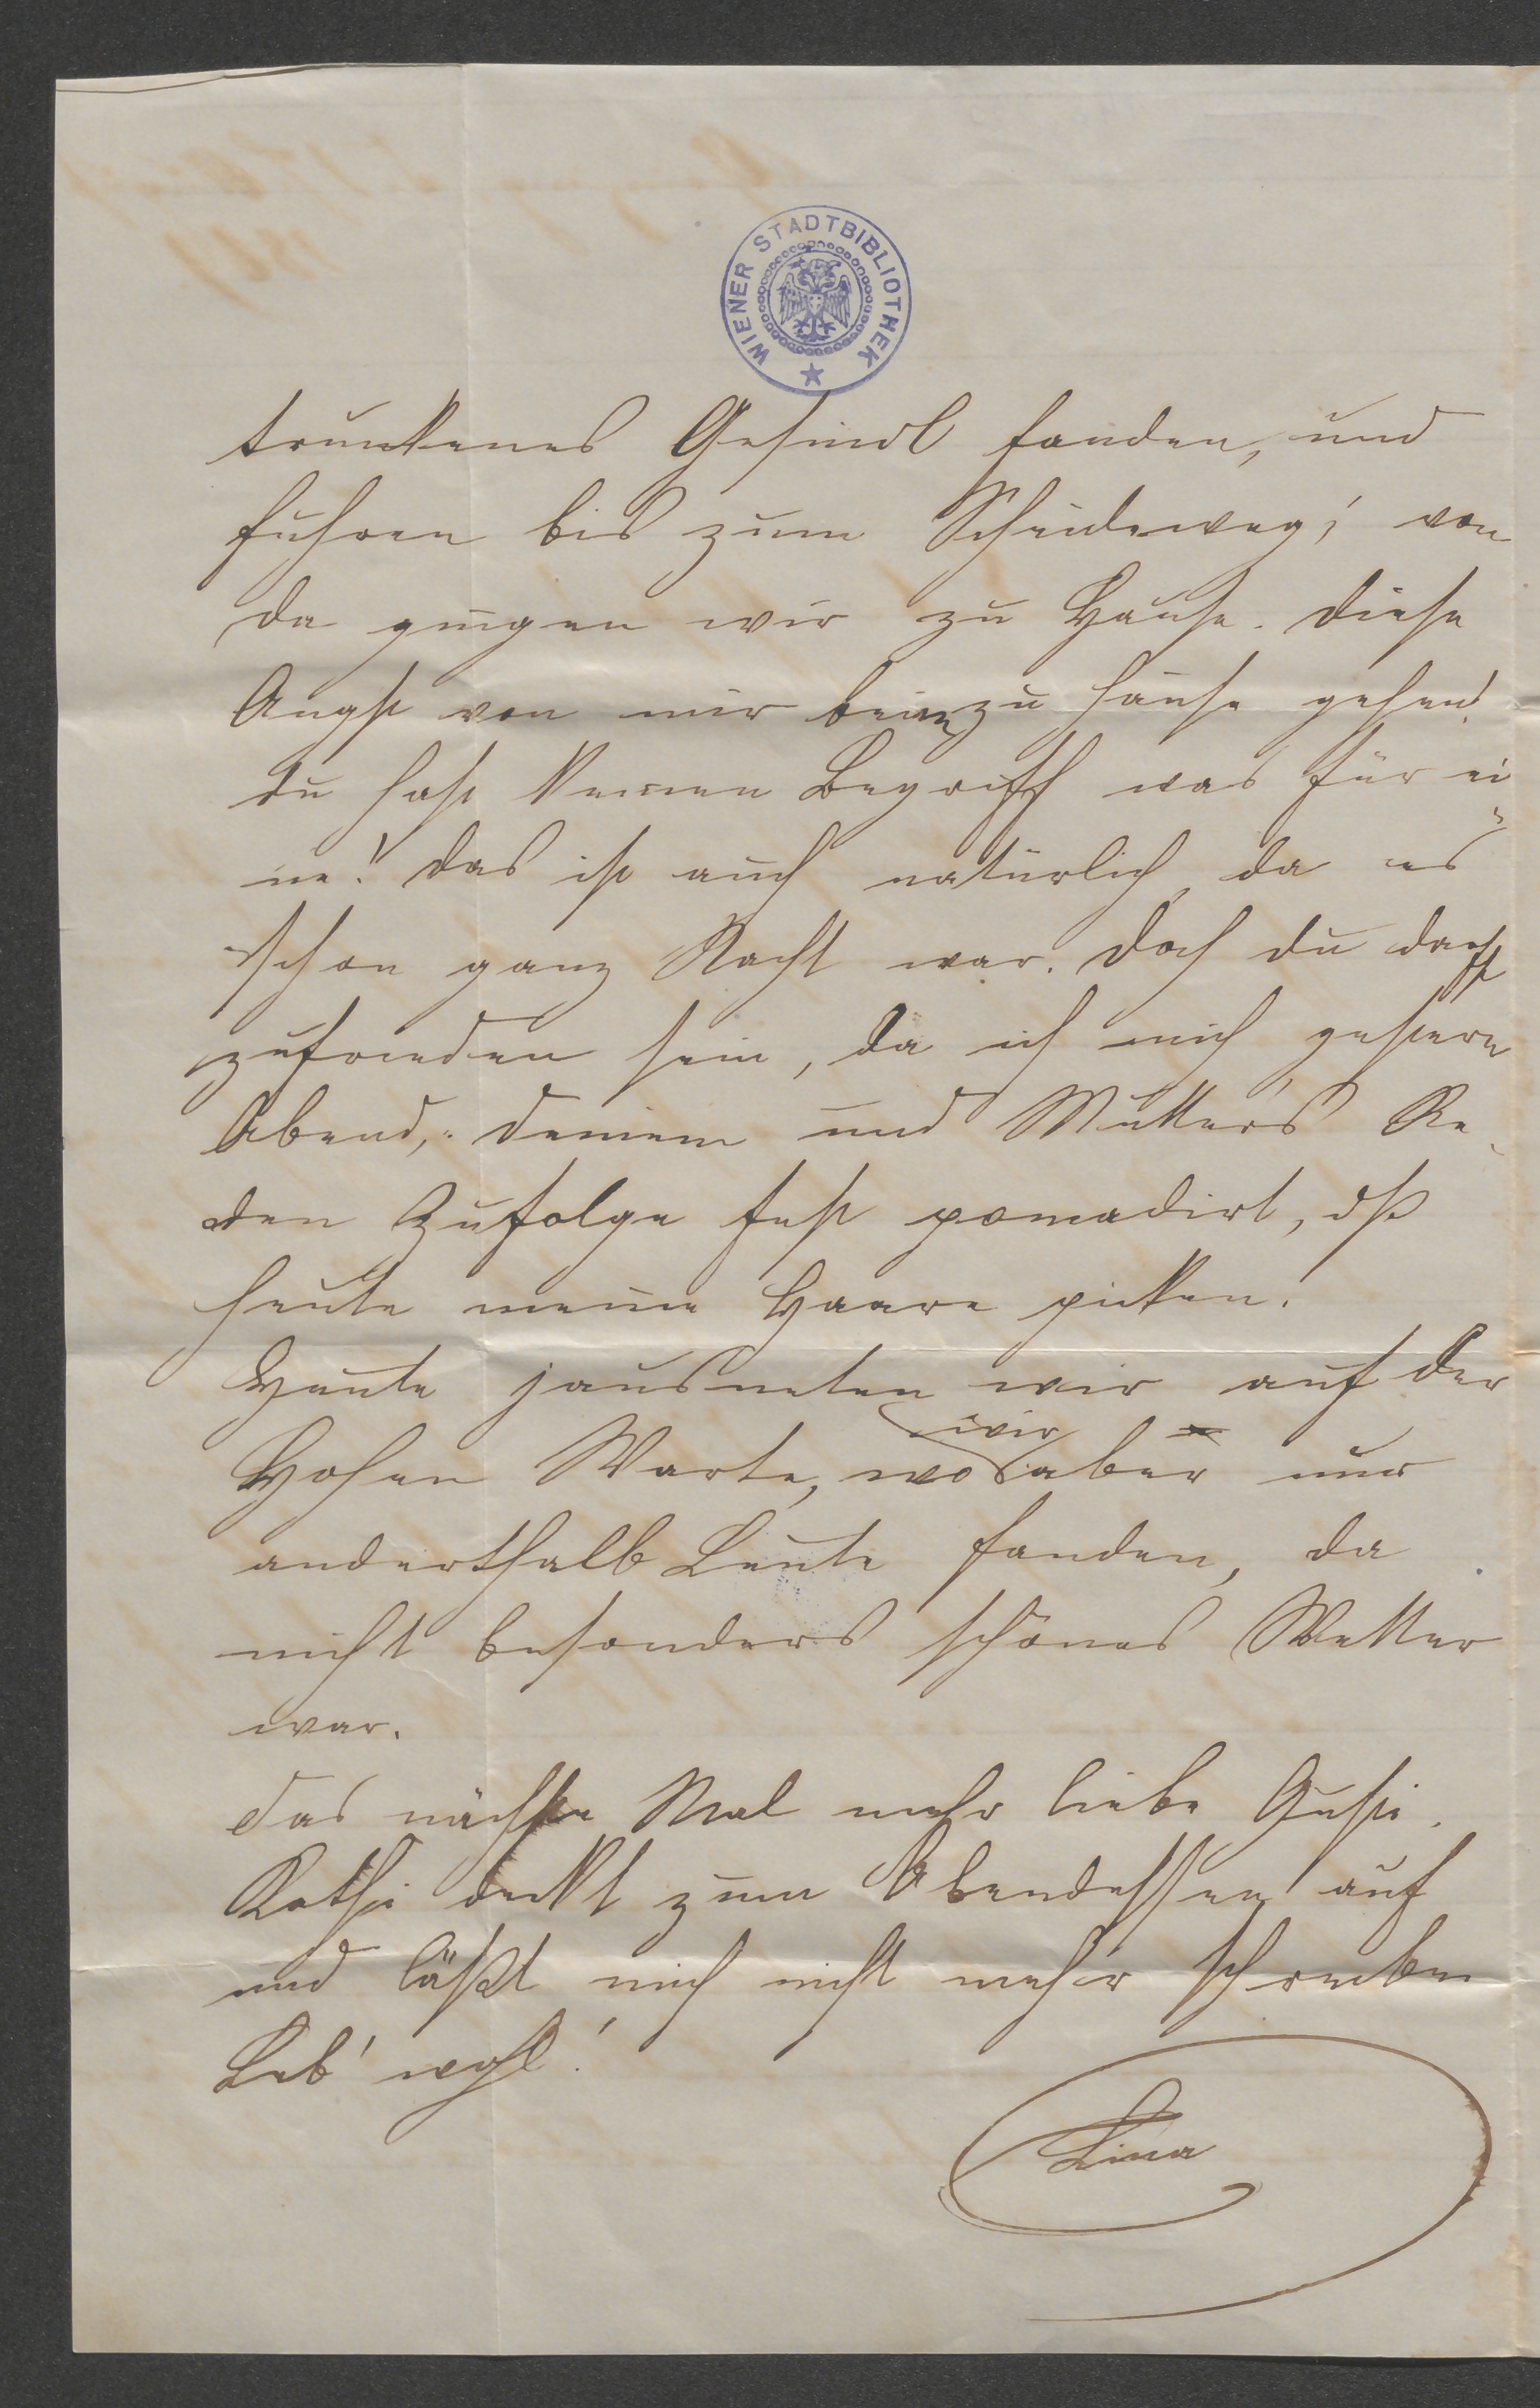 WIENER STADTBIBLIOTHEK
trunkenes Gesindl fanden, und
fuhren bis zum Scheideweg; von
da gingen wir zu Hause. Diese
Angst von mir beim zu Hause gehen!
du hast keinen Begriff was für ei-
ne! das ist auch natürlich, da es
schon ganz Nacht war. Doch du darfst
zufrieden sein, da ich mich gestern
Abend, deinem und Mutter's Re-
den Zufolge fest pomadirt, dß
heute meine Haare picken.
Heute jausneten wir auf der
Hohen Warte, wo wir aber nur
anderthalb Leute fanden, da
nicht besonders schönes Wetter
war.
Das nächste Mal mehr liebe Gusti.
Kathi deckt zum Abendessen auf
und läßt mich nicht mehr schreiben
Leb' wohl!
Lina